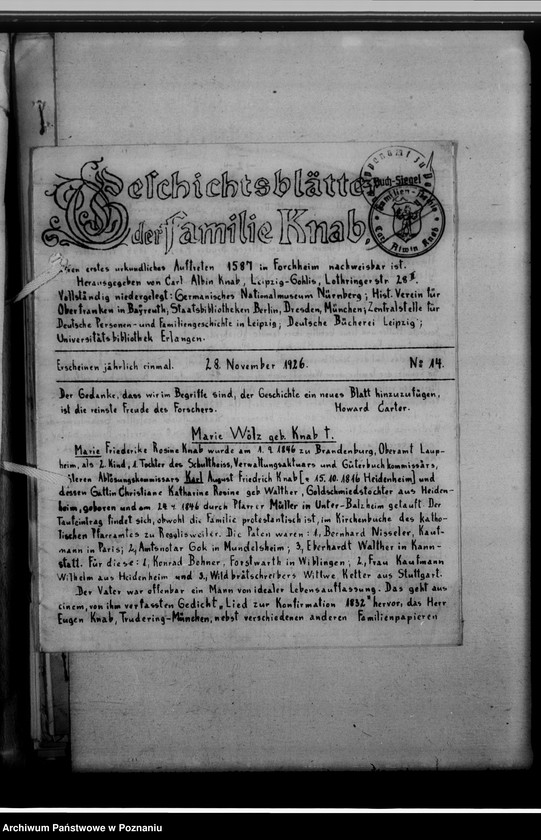 Geschichtsblätter
der Familie Knab,
Buch-Siegel
Familien-Archiv
deren erstes urkundliches Auftreten 1587 in Forchheim nachweisbar ist.
Herausgegeben von Carl Albin Knab, Leipzig-Gohlis, Lothringerstr 28 II.
Vollständig niedergelegt: Germanisches Nationalmuseum Nürnberg; Hist. Verein für
Oberfranken in Bayreuth, Staatsbibliotheken Berlin, Dresden, München; Zentralstelle für
Deutsche Personen- und Familiengeschichte in Leipzig; Deutsche Bücherei Leipzig;
Universitätsbibliothek Erlangen.
Erscheinen jährlich einmal. 28. November 1926. No 14.
Der Gedanke, dass wir im Begriffe sind, der Geschichte ein neues Blatt hinzuzufügen,
ist die reinste Freude des Forschers. Howard Carter.
Marie Wölz geb. Knab †.
Marie Friederike Rosine Knab wurde am 1. 9. 1846 zu Brandenburg, Oberamt Laup-
heim, als 2. Kind, 1. Tochter des Schultheiss, Verwaltungsaktuars und Güterbuchkommissärs,
späteren Ablösungskommissars Karl August Friedrich Knab [* 15. 10. 1816 Heidenheim] und
dessen Gattin Christiane Katharine Rosine geb Walther, Goldschmiedstochter aus Heiden-
heim, geboren und am 29. 9. 1846 durch Pfarrer Müller in Unter-Balzheim getauft. Der
Taufeintrag findet sich, obwohl die Familie protestantisch ist, im Kirchenbuche des katho-
lischen Pfarramtes zu Regglisweiler. Die Paten waren: 1, Bernhard Nisseler, Kauf-
mann in Paris; 2, Amtsnotar Gok in Mundelsheim; 3, Eberhardt Walther in Kann-
statt. Für diese: 1, Konrad Bohner, Forstwarth in Wiblingen; 2, Frau Kaufmann
Wilhelm aus Heidenheim und 3., Wildbrätschreibers Wittwe Ketter aus Stuttgart.
Der Vater war offenbar ein Mann von idealer Lebensauffassung. Das geht aus
einem, von ihm verfassten Gedicht „Lied zur Konfirmation 1832" hervor, das Herr
Eugen Knab, Trudering-München, nebst verschiedenen anderen Familienpapieren
Archiwum Państwowe w Poznaniu